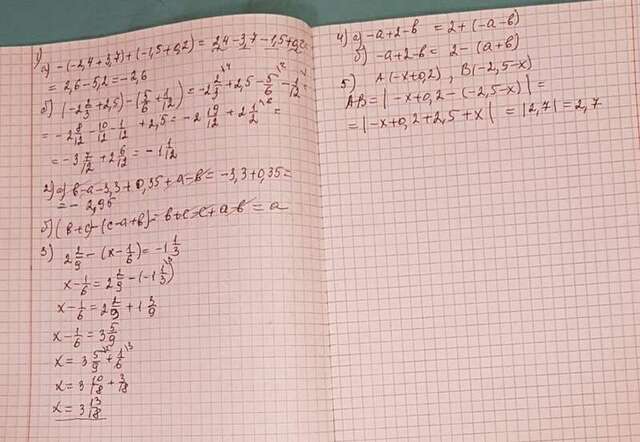 1)
а) -(-2,4+3,7)+(-1,5+0,2) = 2,4-3,7-1,5+0,2=
= 2,6-5,2=-2,6
б) (-2 2/3+2,5)-(5/6+1/12) = -2 2/3+2,5-5/6-1/12=
= -2 8/12-10/12-1/12+2,5=-2 19/12+2 1/2=
= -3 7/12+2 6/12=-1 1/12
2) а) в-а-3,3+0,35+а-в=-3,3+0,35=
= -2,95
б) (в+с)-(с-а+в)=в+с-с+а-в=а
3)
2 2/9-(x-1/6)=-1 1/3
x-1/6=2 2/9-(-1 1/3)
x-1/6=2 2/9+1 3/9
x-1/6=3 5/9
x=3 5/9+1/6
x=3 10/18+3/18
x=3 13/18
4) а) -а+2-в = 2+(-а-в)
б) -а+2-в= 2-(а+в)
5) А(-x+0,2), В(-2,5-x)
АВ=|-x+0,2-(-2,5-x)|=
=|-x+0,2+2,5+x|=|2,7|=2,7